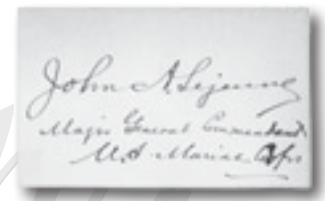 John A. Lejeune
Major General Commandant
U.S. Marine Corps